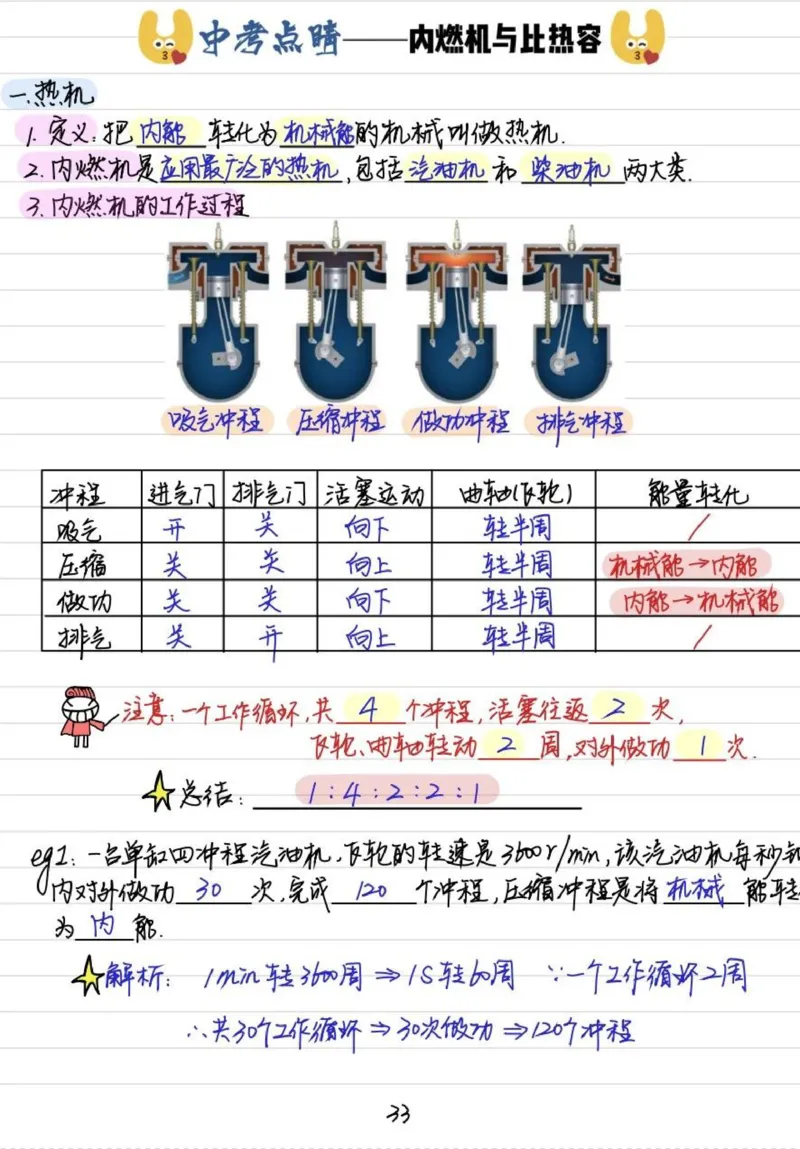 中考点睛——内燃机与比热容
一.热机
1. 定义:把 内能 转化为 机械能 的机械叫做热机.
2. 内燃机是应用最广泛的热机,包括 汽油机 和 柴油机 两大类.
3. 内燃机的工作过程
吸气冲程 压缩冲程 做功冲程 排气冲程
冲程 进气门 排气门 活塞运动 曲轴(飞轮) 能量转化
吸气 开 关 向下 转半周 /
压缩 关 关 向上 转半周 机械能→内能
做功 关 关 向下 转半周 内能→机械能
排气 关 开 向上 转半周 /
注意:一个工作循环,共 4 个冲程,活塞往返 2 次,
飞轮、曲轴转动 2 周,对外做功 1 次.
总结: 1:4:2:2:1
eg1:一台单缸四冲程汽油机,飞轮的转速是3600r/min,该汽油机每秒钟
内对外做功 30 次,完成 120 个冲程,压缩冲程是将 机械 能转
为 内 能.
解析: 1min转3600周⇒1S转60周 ∵一个工作循环2周
∴共30个工作循环⇒30次做功⇒120个冲程
33